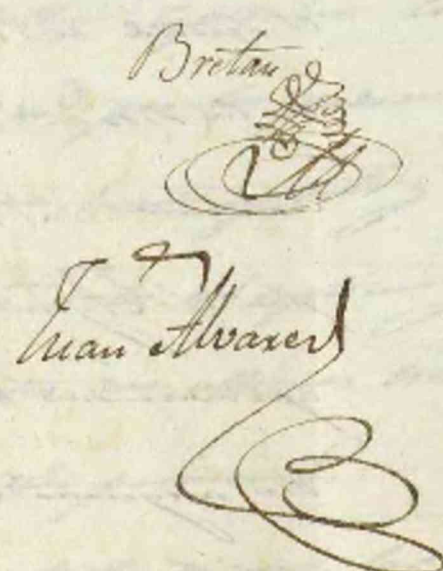 Bretau
Juan Alvarez